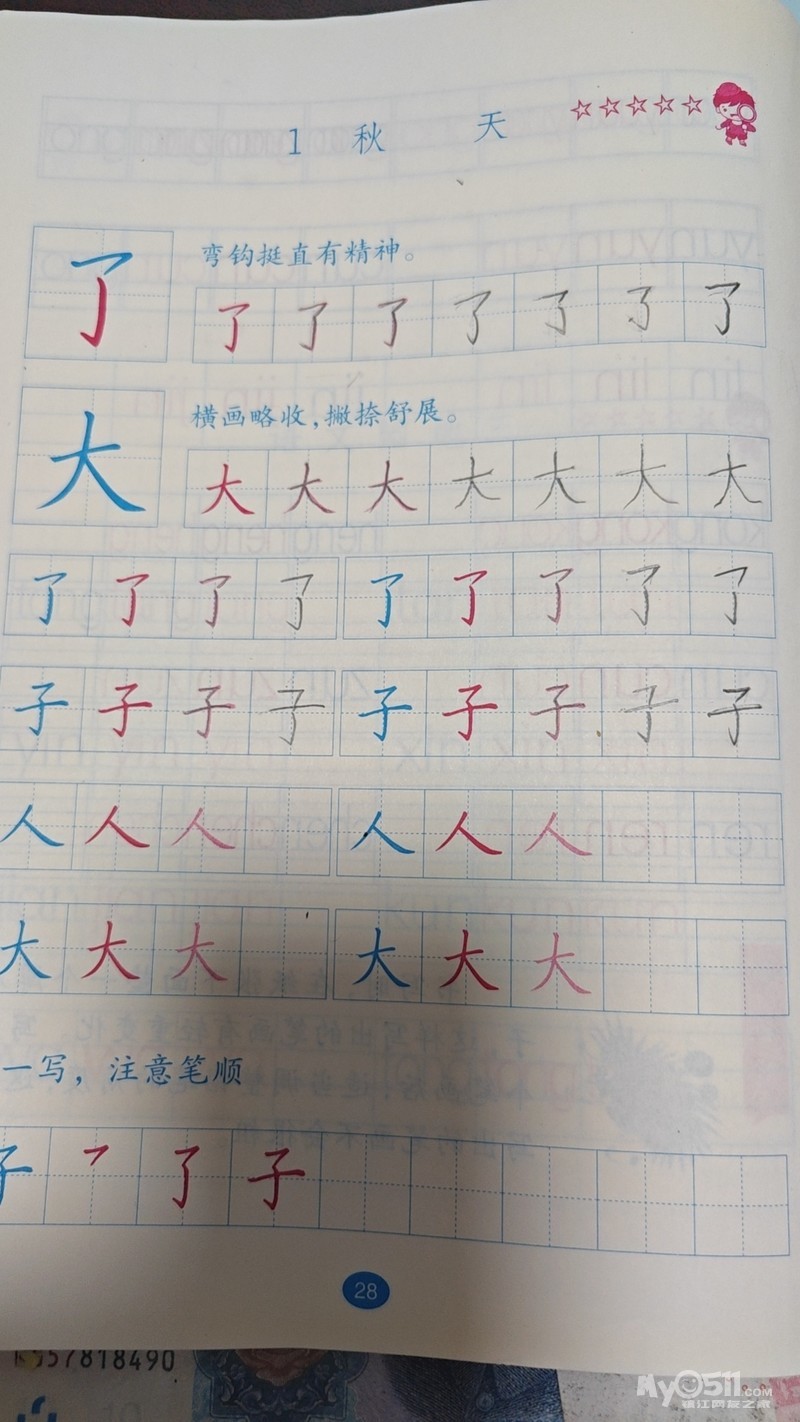 1 秋 天
了 弯钩挺直有精神。
了 了 了 了 了 了 了
大 横画略收,撇捺舒展。
大 大 大 大 大 大 大
了 了 了 了 了 了 了 了 了
子 子 子 子 子 子 子 子 子
人 人 人 人 人 人
大 大 大 大 大 大
一写，注意笔顺
子 了 子
28
57818490
My0511.COM
镇江网友之家